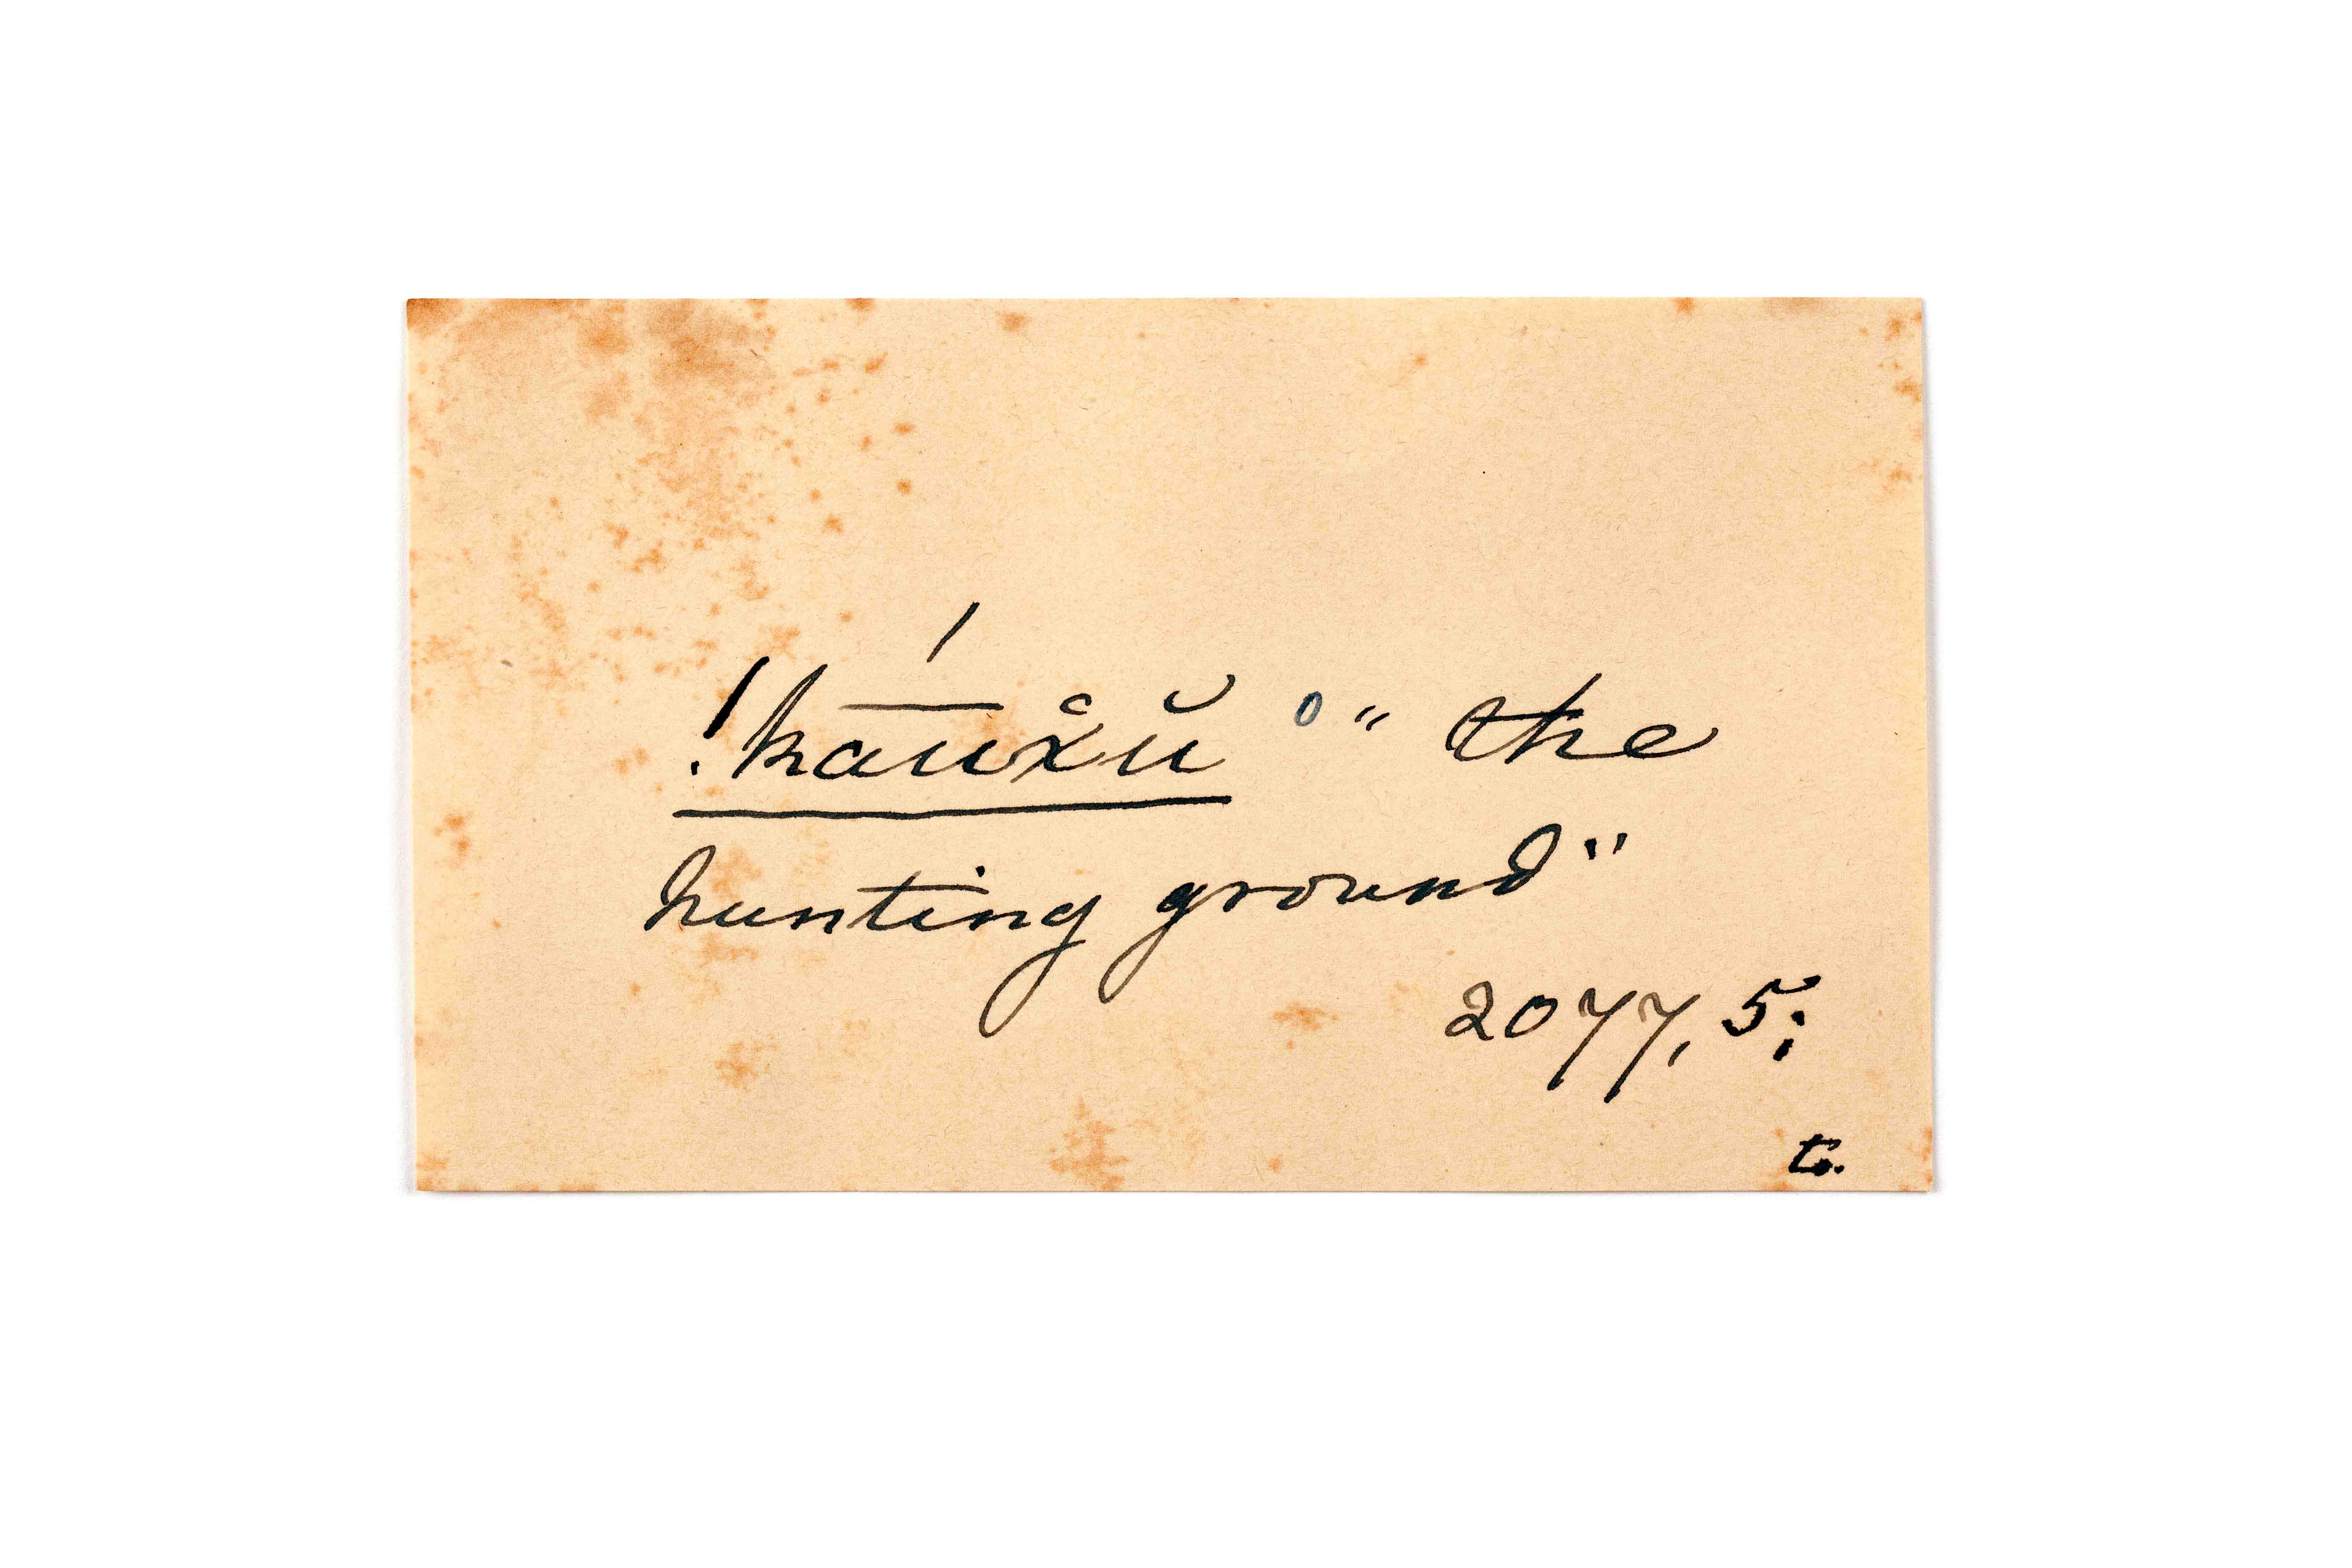 !háu̅x̆ŭ o " the
hunting ground"
2077, 5;
to.